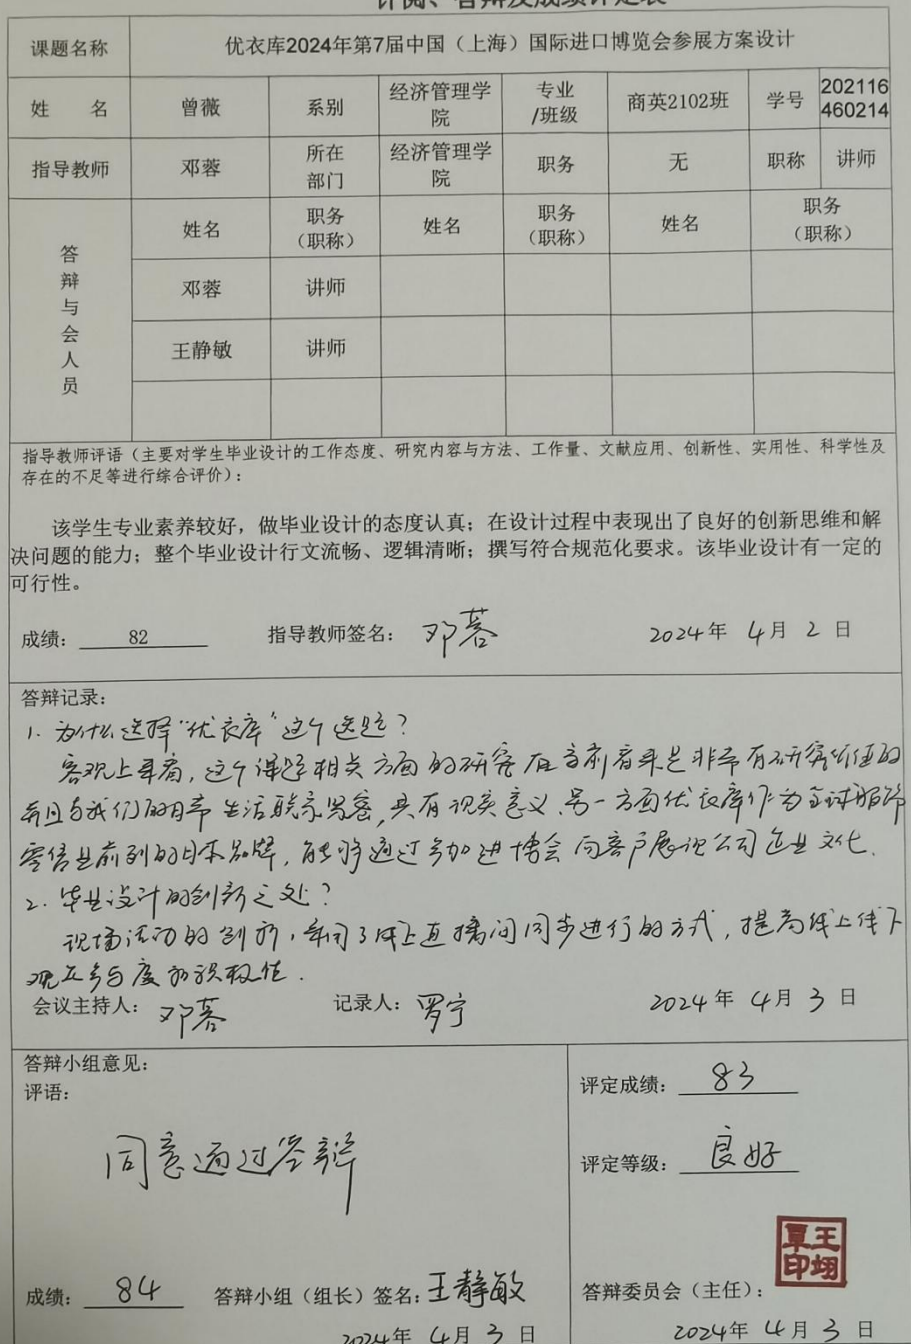 评阅、答辩及成绩评定表
课题名称 优衣库2024年第7届中国（上海）国际进口博览会参展方案设计
姓 名 曾薇 系别 经济管理学院 专业/班级 商英2102班 学号 202116460214
指导教师 邓蓉 所在部门 经济管理学院 职务 无 职称 讲师
答辩与会人员
姓名 职务（职称） 姓名 职务（职称） 姓名 职务（职称）
邓蓉 讲师
王静敏 讲师
指导教师评语（主要对学生毕业设计的工作态度、研究内容与方法、工作量、文献应用、创新性、实用性、科学性及
存在的不足等进行综合评价）：
该学生专业素养较好，做毕业设计的态度认真；在设计过程中表现出了良好的创新思维和解
决问题的能力；整个毕业设计行文流畅、逻辑清晰；撰写符合规范化要求。该毕业设计有一定的
可行性。
成绩： 82 指导教师签名： 邓蓉 2024年 4月 2 日
答辩记录：
1. 为什么选择“优衣库”这个选题？
客观上来看，这个课题相关方面的研究在当前看来是非常有研究价值的
并且与我们的日常生活联系紧密，具有现实意义，另一方面优衣库作为全球服饰
零售业前列的日本品牌，能够通过参加进博会向客户展现公司企业文化.
2. 毕业设计的创新之处？
现场活动的创新，采用了线上直播间同步进行的方式，提高线上线下
观众参与度和积极性.
会议主持人： 邓蓉 记录人： 罗宁 2024年 4月 3 日
答辩小组意见：
评语：
同意通过答辩
成绩： 84 答辩小组（组长）签名：王静敏
2024年 4月 3 日
评定成绩： 83
评定等级： 良好
答辩委员会（主任）：
2024年 4月 3 日